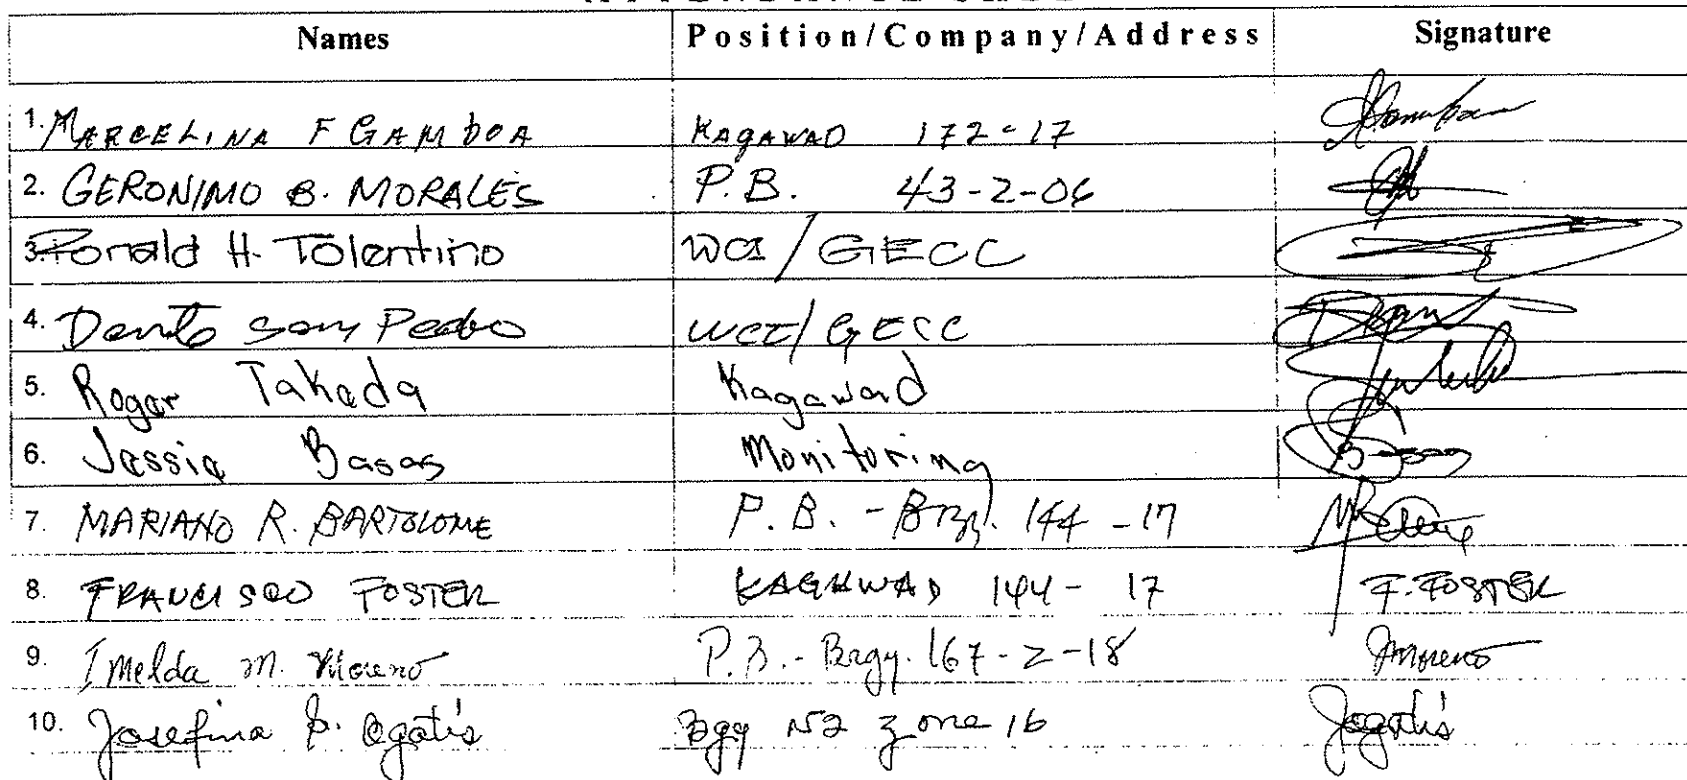 Names Position/Company/Address Signature
1. MARCELINA F GAMBOA KAGAWAD 172-17
2. GERONIMO B. MORALES P.B. 43-2-06
3. Ronald H. Tolentino WCI/GECC
4. Danilo San Pedro WCI/GECC
5. Roger Takeda Kagawad
6. Jessie Basas Monitoring
7. MARIANO R. BARTOLOME P.B. - Brgy. 144-17
8. FRANCISCO FOSTER KAGAWAD 144-17 F. FOSTER
9. Imelda M. Moreno P.B. - Brgy. 167-Z-18 Moreno
10. Josefina Ogatis Bgy zone 16 Jogatis